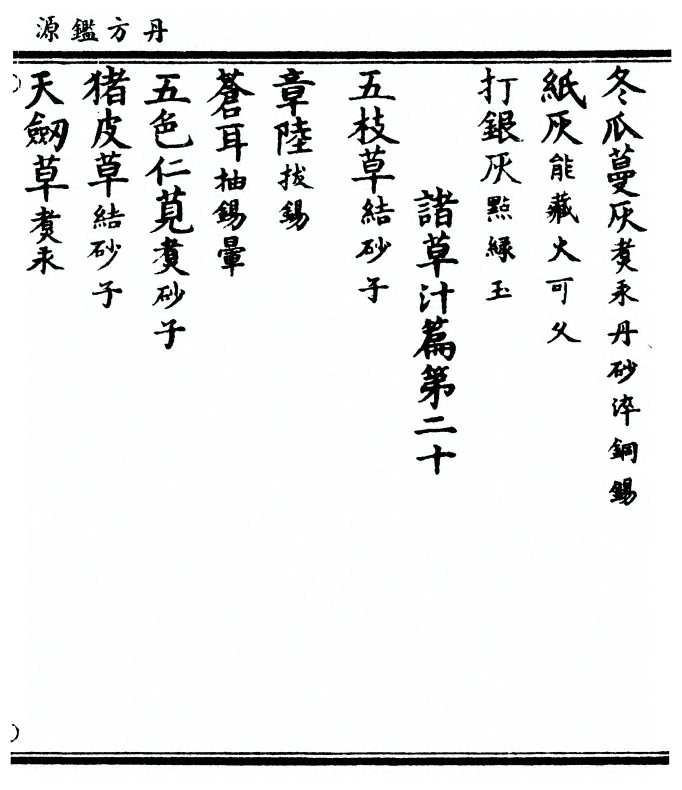 丹方鑑源
冬瓜蔓灰煑汞丹砂淬銅錫
紙灰能藏火可久
打銀灰點緑玉
諸草汁篇第二十
五枝草結砂子
章陸拔錫
蒼耳抽錫暈
五色仁莧煑砂子
猪皮草結砂子
天劒草煑汞